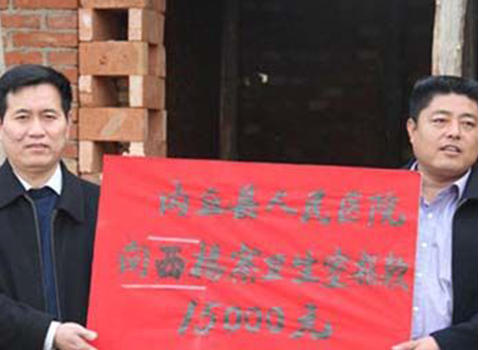 内丘县人民医院
向西杨寨卫生室捐款
15000元